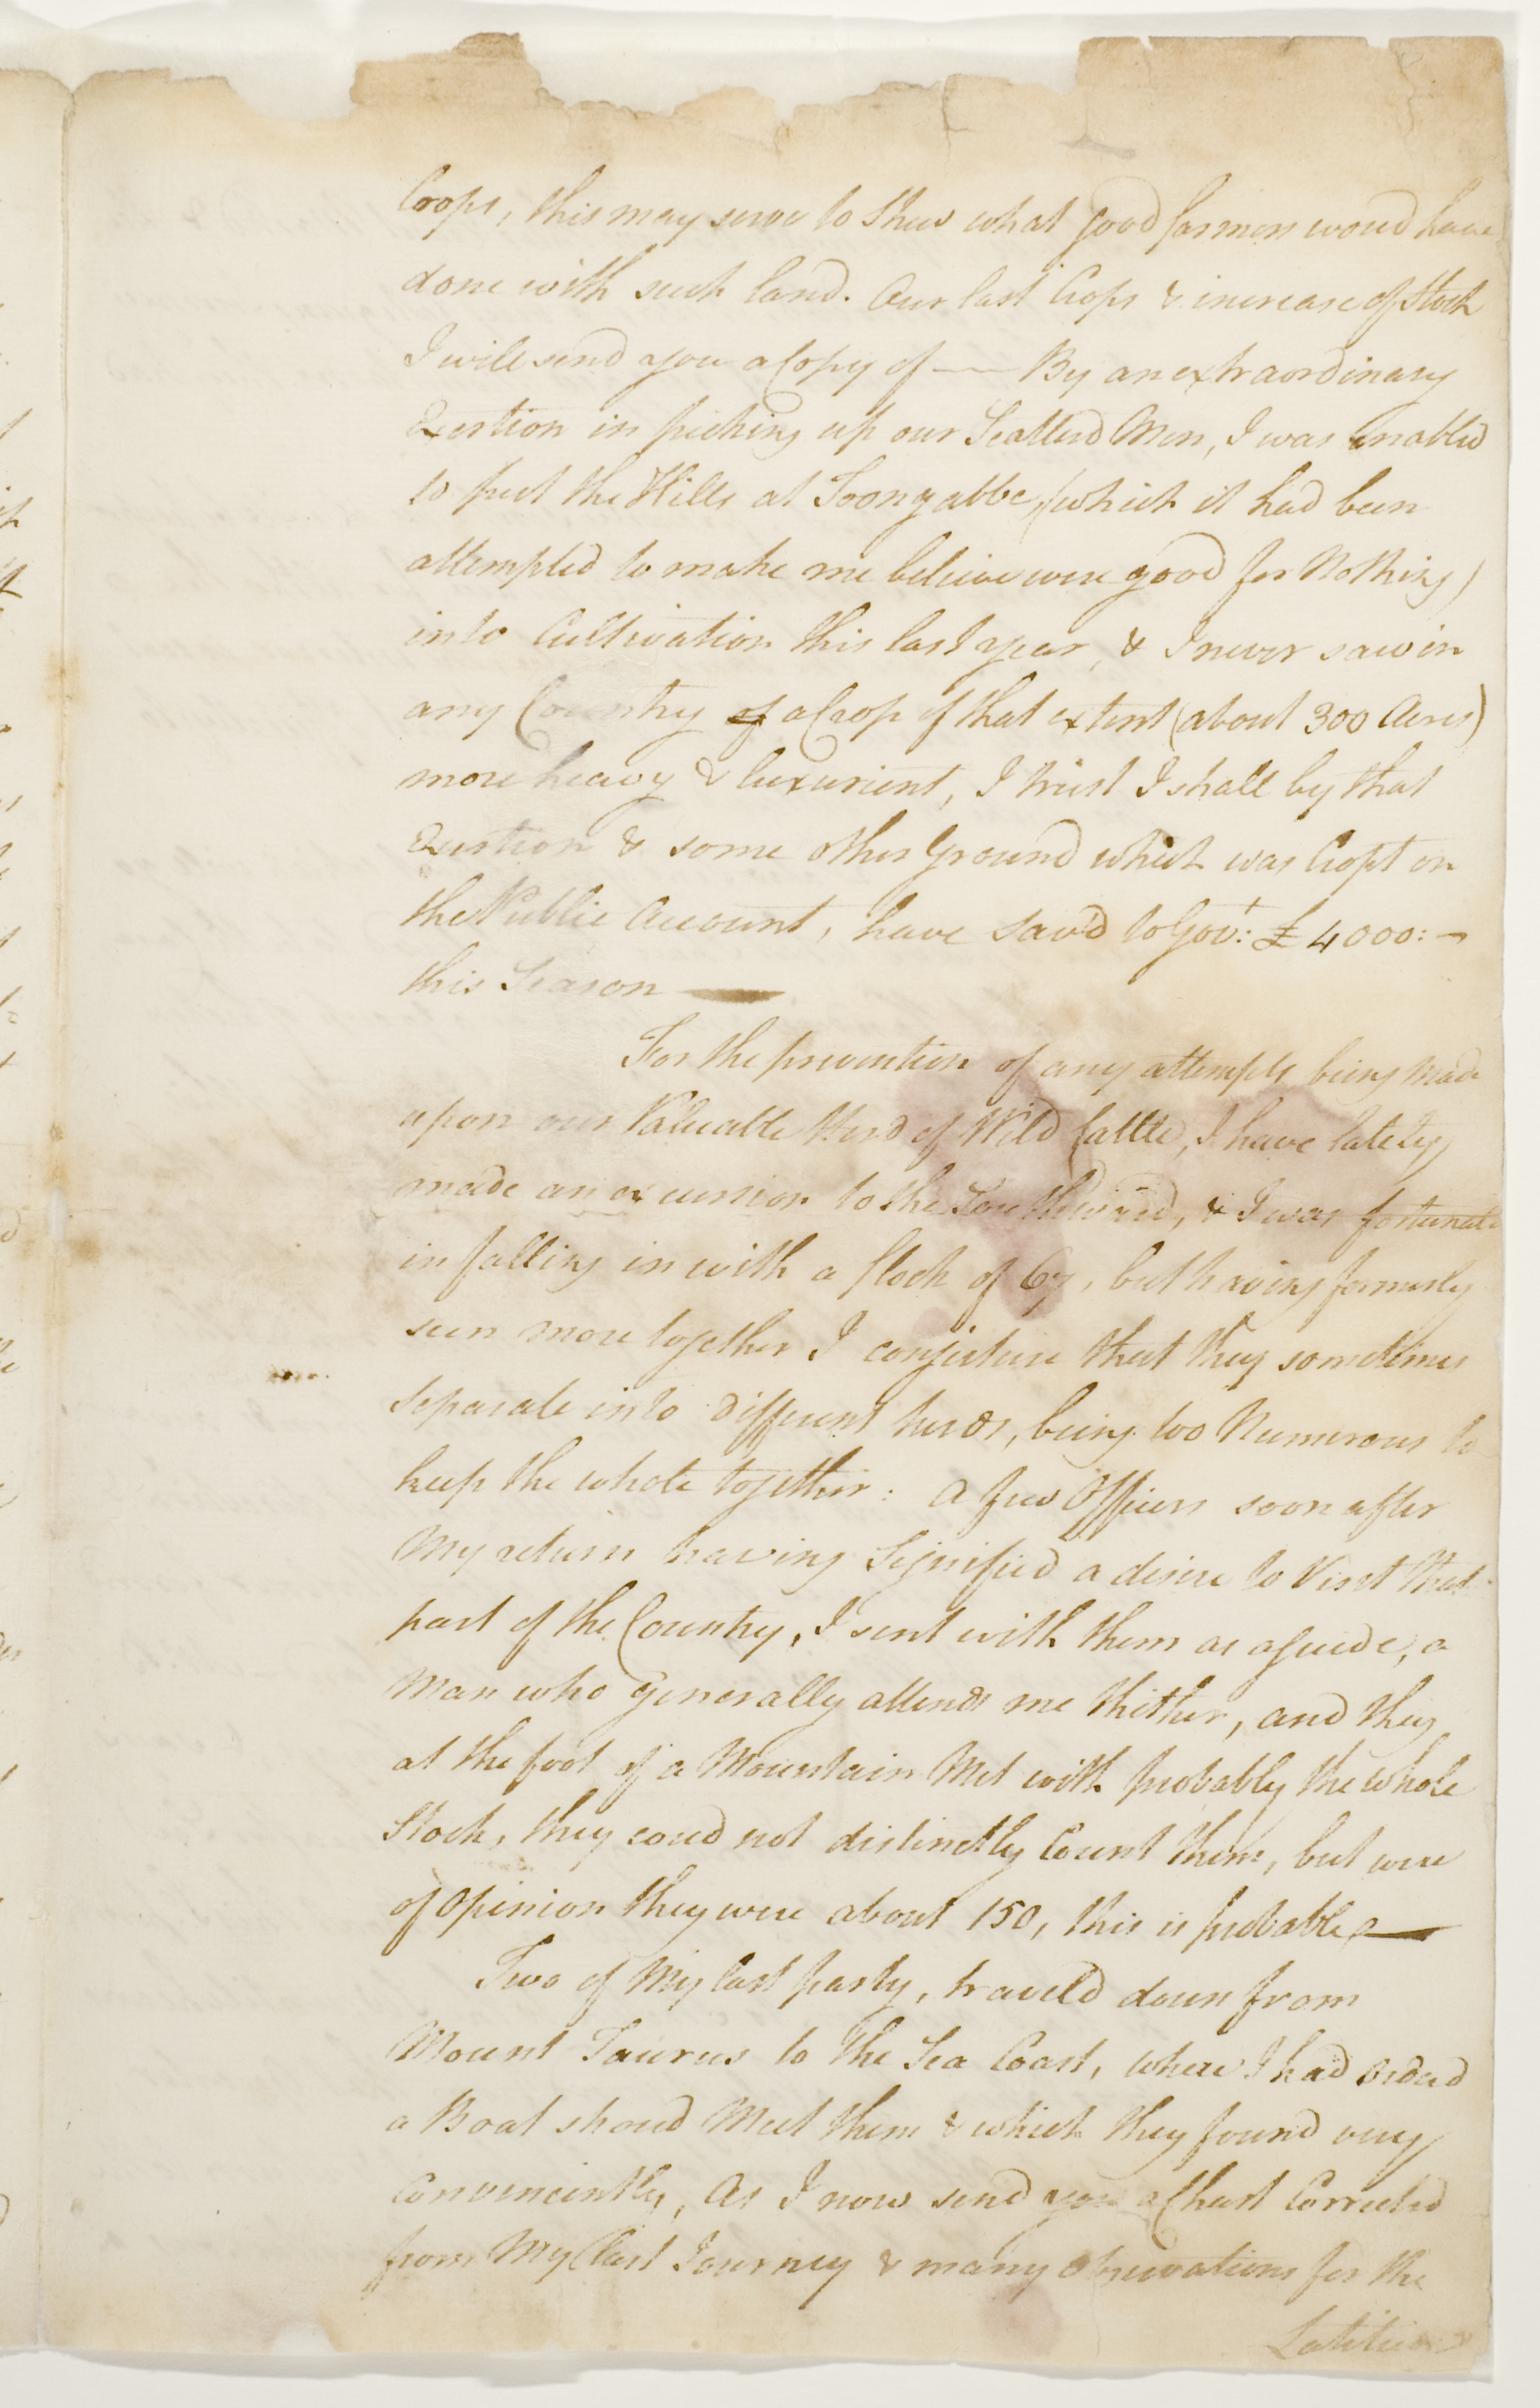 Crops, this may serve to shew what good farmers woud have
done with such land. Our last Crops & increase of Stock
I will send you a Copy of —— By an extraordinary
Exertion in picking up our Scatterd Men, I was Enabled
to put the Hills at Toongabbe, (which it had been
attempted to make me believe were good for Nothing)
into Cultivation this last year, & I never saw in
any Country of a Crop of that extent (about 300 Acres)
more heavy & luxurient, I trust I shall by that
Exertion & some other Ground which was Cropt on
the Public Account, have sav'd to Govt: £4000:—
this Season ——
For the prevention of any attempts being made
upon our Valuable Herd of Wild Cattle, I have lately
made an excursion to the Southward, & I was fortunate
in falling in with a flock of 67, but having formerly
seen more together I conjecture that they sometimes
separate into different herds, being too Numerous to
keep the whole together: a few Officers soon after
My return having Signified a desire to Visit that
part of the Country, I sent with them as a guide, a
Man who generally attends me thither, and they
at the foot of a Mountain Met with probably the whole
Stock, they coud not distinctly Count them, but were
of opinion they were about 150, this is probable ——
Two of My last party, traveld down from
Mount Taurus to the Sea Coast, where I had orderd
a Boat shoud Meet them & which they found very
Conveniently, As I now send you a Chart Corrected
from My last Journey & many observations for the
Latitude